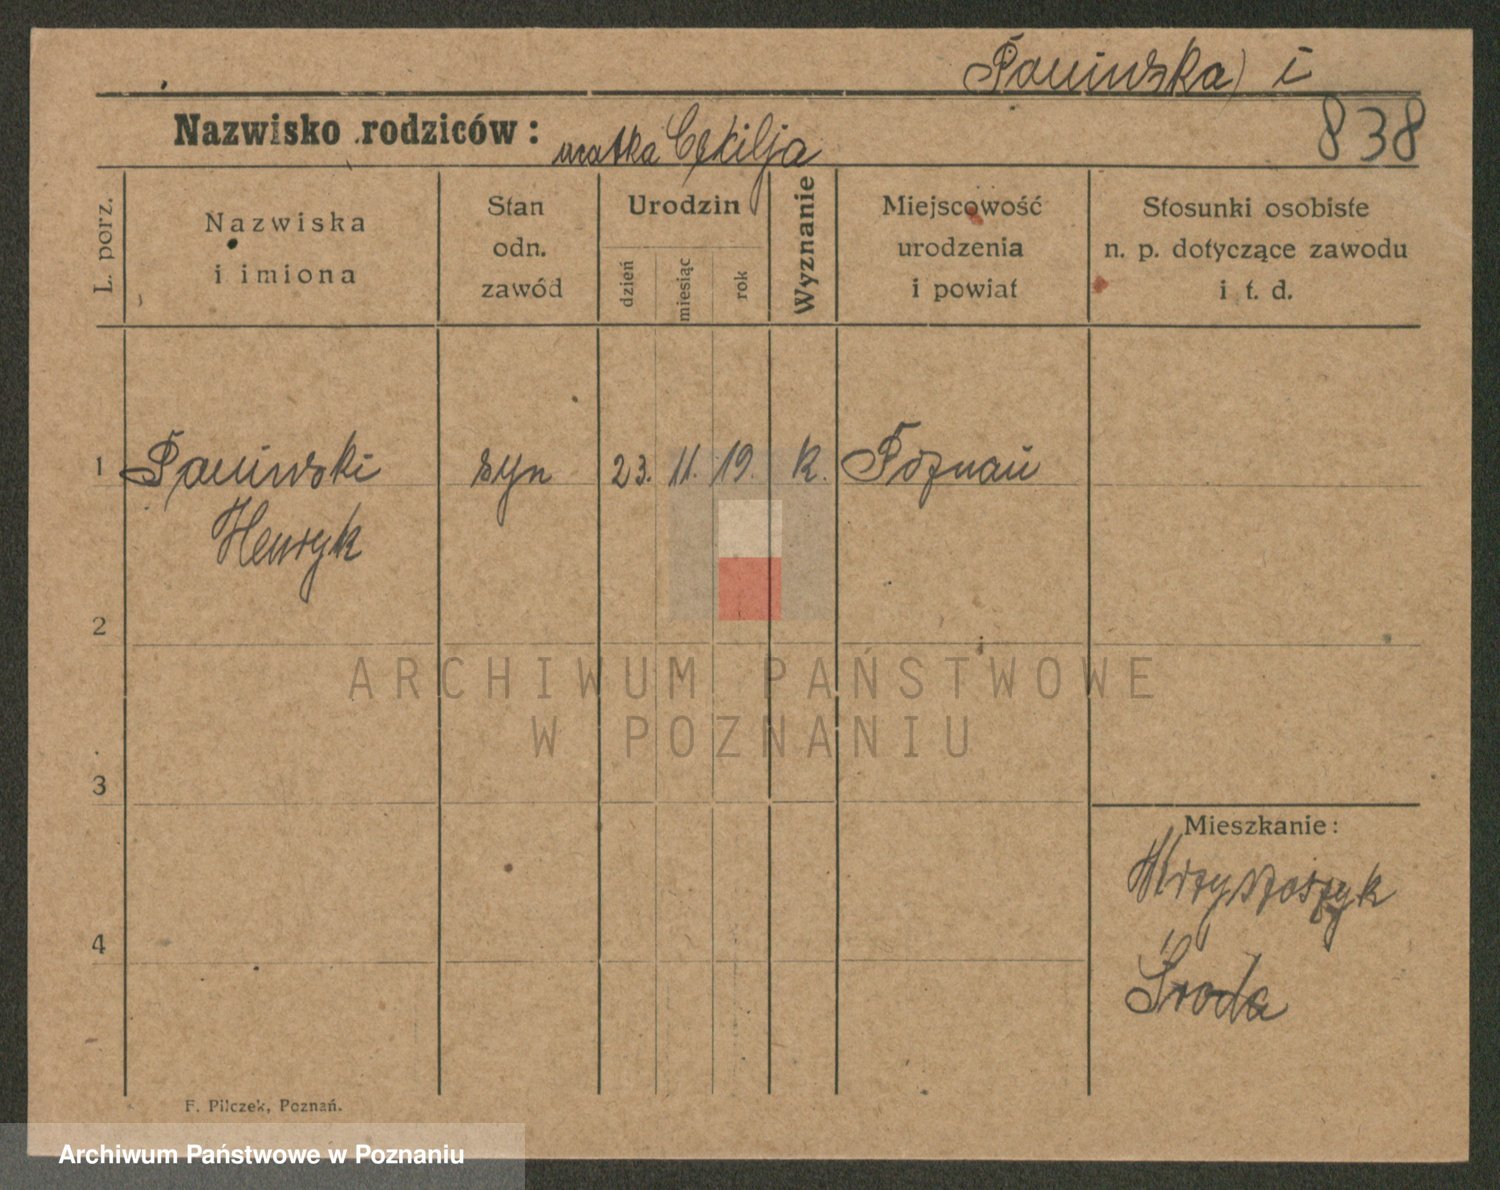 Paniwska) i
Nazwisko rodziców: matka Cecilja
838
L. porz.
Nazwiska
i imiona
Stan
odn.
zawód
Urodzin
dzień
miesiąc
rok
Wyznanie
Miejscowość
urodzenia
i powiat
Stosunki osobiste
n. p. dotyczące zawodu
i t. d.
1 Paniwski syn 23. 11. 19. k. Poznań
Henryk
2
3
4
Mieszkanie:
Środa
F. Pilczek, Poznań.
ARCHIWUM PAŃSTWOWE
W POZNANIU
Archiwum Państwowe w Poznaniu